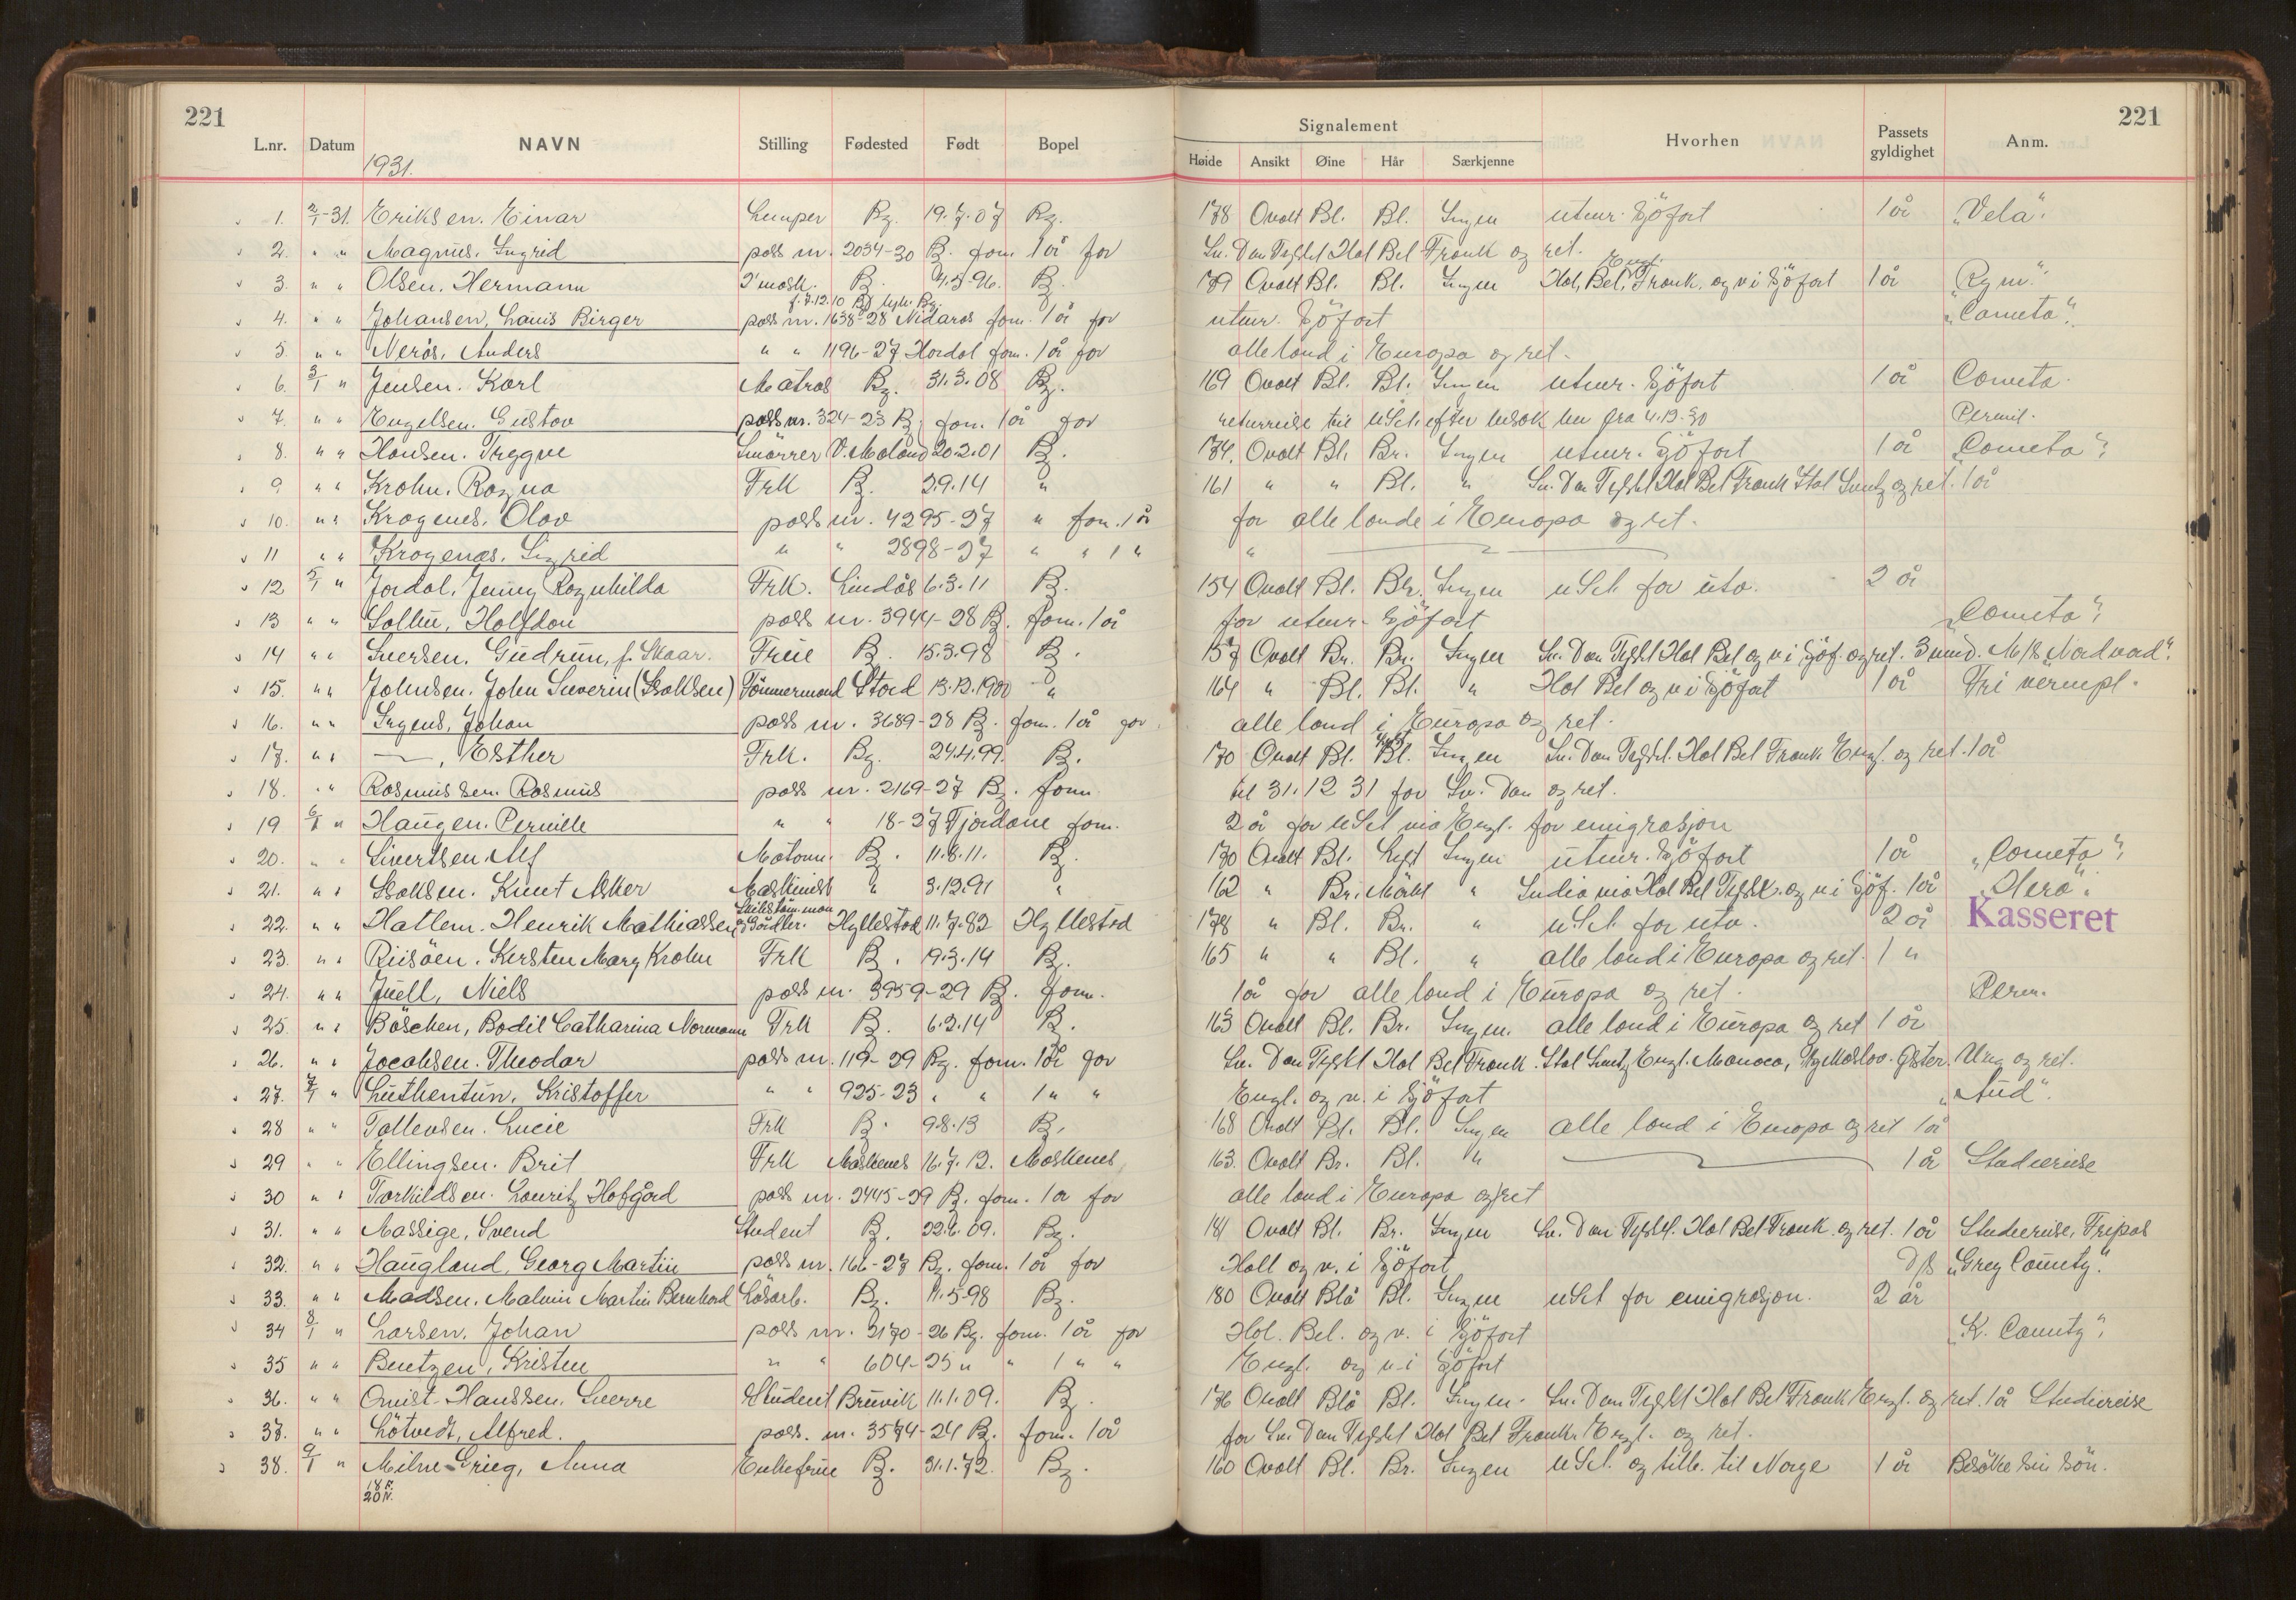 221
L.nr. Datum NAVN Stilling Fødested Født Bopel
1931.
Signalement
Høide Ansikt Øine Hår Særkjenne Hvorhen Passets gyldighet Anm.
221
1. 2/1-31. Eriksen. Einar Lemper Bg. 19.7.07 Bg. 178 Ovalt Bl. Bl. Ingen uteur. Sjöfart 1 år "Vela".
2. " " Magnus. Ingrid pass nr. 2034-30 B. forn. 1 år for Sv. Dan Tyskl Hol Bel Frank og ret.
3. " " Olsen. Hermann 2' mask. B. 4.5-96. B. 179 Ovalt Bl. Bl. Ingen Hol, Bel, Frank, Engl. og v i Sjöfart 1 år "Rym".
f. 7.12.10
4. " " Johansen, Lauis Birger pass nr. 1638-28 Nidaros forn. 1 år for uteur. Sjöfart "Cometa".
5. " " Nerös, Anders " " 1196-27 Hordal forn. 1 år for alle land i Europa og ret.
6. 3/1 " Jensen. Karl Matros Bg. 31.3.08 Bg. 169 Ovalt Bl. Bl. Ingen uteur. Sjöfart 1 år Cometa.
7. " " Engelsen. Gustav pass nr. 324-23 B. forn. 1 år for returreise til USA efter besök her fra 4.12.30 Permit.
8. " " Hansen. Tryggve Smörrer V. Moland 20.2.01 B. 174. Ovalt Bl. Br. Ingen uteur. Sjöfart 1 år "Cometa".
9. " " Krohn. Ragna Frk B. 2.9.14 " 161 " " Bl. " Sv. Dan Tyskl Hol Bel Frank Ital Sveitz og ret. 1 år
10. " " Krogenes. Olav pass nr. 4295-27 " forn. 1 år for alle lande i Europa og ret.
11 " " Krogenæs. Sigrid " " 2898-27 " " 1 " "
12 5/1 " Jordal. Jenny Ragnhilda Frk. Lindås 6.3.11 B. 154 Ovalt Bl. Br. Ingen USA for utv. 2 år
13 " " Sollie, Halfdan pass nr. 3944-28 B. forn. 1 år for uteur. Sjöfart "Cometa".
14 " " Iversen. Gudrun, f. Skaar. Frue B. 15.3.98 B. 157 Ovalt Br. Br. Ingen Sv. Dan Tyskl Hol Bel og v i Sjöf. og ret. 3 mnd. M/S "Nordvard".
15. " " Johnsen. John Severin (Isaksen) Tömmermand Stord 13.12.1900 " 164 " Bl. Bl. " Hol Bel og v i Sjöfart 1 år Fri vernepl.
16. " " Irgens, Johan pass nr. 3689-28 B. forn. 1 år for alle land i Europa og ret.
17. " " —, Esther Frk. Bg. 24.4.99. B. 170 Ovalt Bl. Bl. Ingen Sv. Dan Tyskl. Hol Bel Frank Engl. og ret. 1 år
18. " " Rasmussen. Rasmus pass nr. 2169-27 B. forn til 31.12 31 for Sv. Dan og ret.
19 6/1 " Haugen. Pernille " " 18-27 Fjordane forn. 2 år for USA via Engl. for emigrasjon
20. " " Sivertsen. Alf Matonn. B. 11.8.11. B. 170 Ovalt Bl. Lyst Ingen uteur. Sjöfart 1 år "Cometa".
21. " " Isaksen. Knut Asker Maskinist " 3.12.91 " 162 " Br. Mörkt " India via Hol Bel Tyskl. og v i Sjöf. 1 år "Hero".
22. " " Hatlem. Henrik Mathiassen Skibstömman og Gårdbr. Hyllestad 11.7.82 Hyllestad 178 " Bl. Br. " USA for utv. 2 år Kasseret
23. " " Riisöen. Kirsten Mary Krohn Frk B. 19.3.14 B. 165 " " Bl. " alle land i Europa og ret. 1 "
24. " " Juell, Niels pass nr. 3959-29 B. forn. 1 år for alle land i Europa og ret. Perm.
25. " " Böschen, Bodil Catharina Normann Frk B. 6.2.14 B. 163 Ovalt Bl. Br. Ingen. alle land i Europa og ret 1 år
26. " " Jacobsen. Theodor pass nr. 119-29 Bg. forn. 1 år for Sv. Dan Tyskl Hol Bel Frank. Ital Sveitz Engl. Monaco, Öster. Ung og ret.
27. 7/1 " Luthentun, Kristoffer " " 925-23 " " 1 " " Engl. og v. i Sjöfart "Aud".
28 " " Tollevsen. Lucie Frk B. 9.8.13 B. 168 Ovalt Bl. Bl. Ingen alle land i Europa og ret 1 år
29 " " Ellingsen. Brit Frk Moskenes 16.7.12. Moskenes 163. Ovalt Br. Bl. " 1 år Studiereise
30 " " Torkildsen. Lauritz Hofgård pass nr. 2445-29 B. forn. 1 år for alle land i Europa og ret
31. " " Massige, Svend Student B. 22.6.09. Bg. 181 Ovalt Bl. Br. Ingen Sv. Dan Tyskl. Hol Bel Frank. og ret. 1 år Studiereise, Fripas
32. " " Haugland, Georg Martin pass nr. 166-27 Bg. forn. 1 år for Holl og v. i Sjöfart D/S "Grey County".
33. " " Madsen. Malvin Martin Bernhard Lösarb. Bg. 11.5-98 Bg. 180 Ovalt Blå Bl. Ingen USA for emigrasjon. 2 år
34 8/1 " Larsen. Johan pass nr. 3170-26 Bg. forn. 1 år for Hol. Bel. og v. i Sjöfart "K. County".
35 " " Bentzen, Kristen " " 604-25 " " 1 " " Engl. og v i Sjöfart
36. " " Qvist-Hanssen. Sverre Student Bruvik 11.1.09. Bg. 176 Ovalt Blå Bl. Ingen. Sv. Dan Tyskl Hol Bel Frank Engl. og ret. 1 år Studiereise
37. " " Lötvedt, Alfred. pass. nr. 3574-24 B. forn. 1 år for Sv. Dan Tyskl Hol Bel Frank. Engl. og ret.
38. 9/1 " Milne-Grieg, Anna Enkefrue B. 31.1.72. Bg. 160 Ovalt Bl. Br. Ingen USA. og tilb. til Norge 1 år Besöke sin sön.
18 F.
20 N.